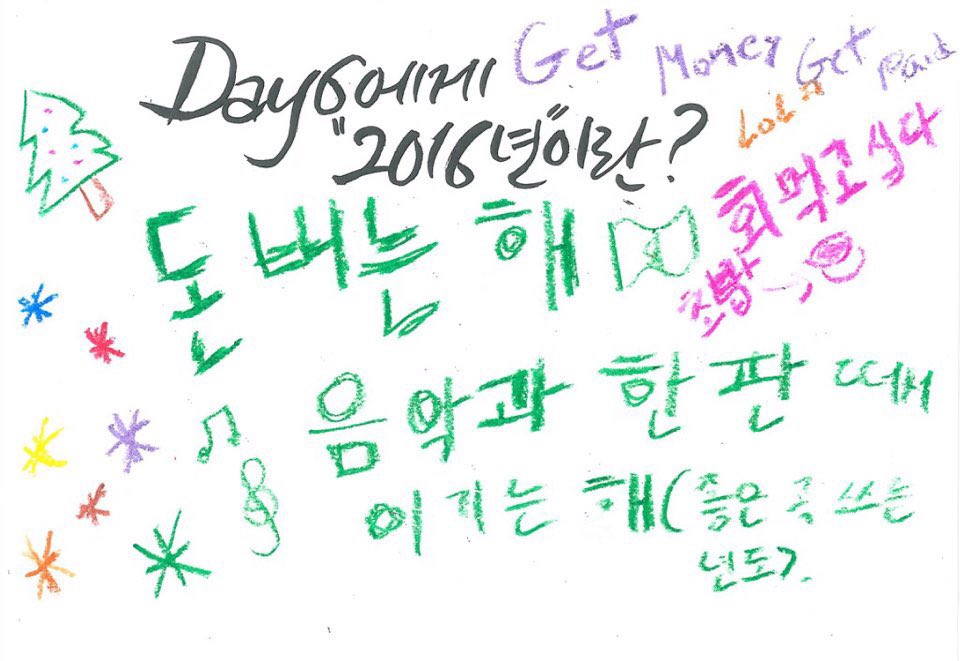 Day6에게 Get Money Get Paid
"2016년"이란? LOL
회먹고싶다
돈 버는 해
음악과 한 판
이기는 해(좋은 곡 쓰는
년도).